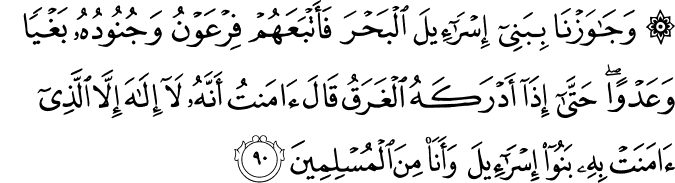 ۞ وَجَٰوَزۡنَا بِبَنِيٓ إِسۡرَٰٓءِيلَ ٱلۡبَحۡرَ فَأَتۡبَعَهُمۡ فِرۡعَوۡنُ وَجُنُودُهُۥ بَغۡيٗا
وَعَدۡوًاۖ حَتَّىٰٓ إِذَآ أَدۡرَكَهُ ٱلۡغَرَقُ قَالَ ءَامَنتُ أَنَّهُۥ لَآ إِلَٰهَ إِلَّا ٱلَّذِيٓ
ءَامَنَتۡ بِهِۦ بَنُوٓاْ إِسۡرَٰٓءِيلَ وَأَنَا۠ مِنَ ٱلۡمُسۡلِمِينَ ٩٠